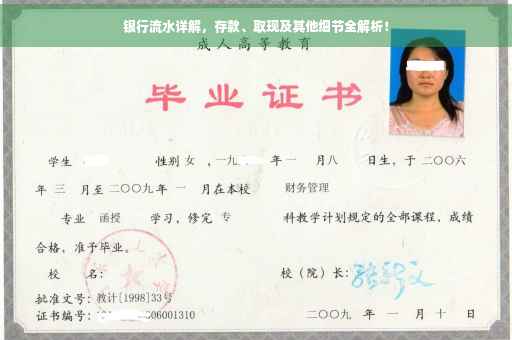 银行流水详解，存款、取现及其他细节全解析！
成人高等教育
毕业证书
学生 性别 女 ，一九 年 一 月 八 日生，于 二〇〇六
年 三 月至 二〇〇九 年 一 月在本校 财务管理
专业 函授 学习，修完 专 科教学计划规定的全部课程，成绩
合格，准予毕业。
校 名： 校（院）长：
批准文号：教计[1998]33号
证书编号： 06001310 二〇〇九 年 一 月 十 日